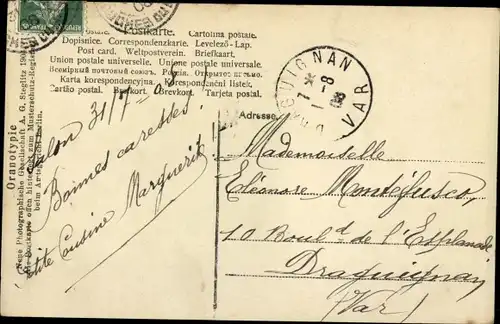 Postkarte. Cartolina postale.
Dopisnice. Correspondenzkarte. Levelező-Lap.
Post card. Weltpostverein. Briefkaart.
Union postale universelle. Unione postale universale.
Всемірный почтовый союзъ. Россія. Открытое письмо.
Karta korespondencyjna. Correspondenční listek.
Cartão postal. Brevkort. Brefkort. Tarjeta postal.
Adresse.
DRAGUIGNAN
7 *
1 -8
08
VAR
Oranotypie
Neue Photographische Gesellschaft A. G. Steglitz 190
beim Amtsgericht Berlin.
Salon 31/7-08
Bonnes caresses.
Petite Cousine Marguerite
Mademoiselle
Eléonore Montéfusco,
10 Boul.d de l'Esplanade
Draguignan
(Var)